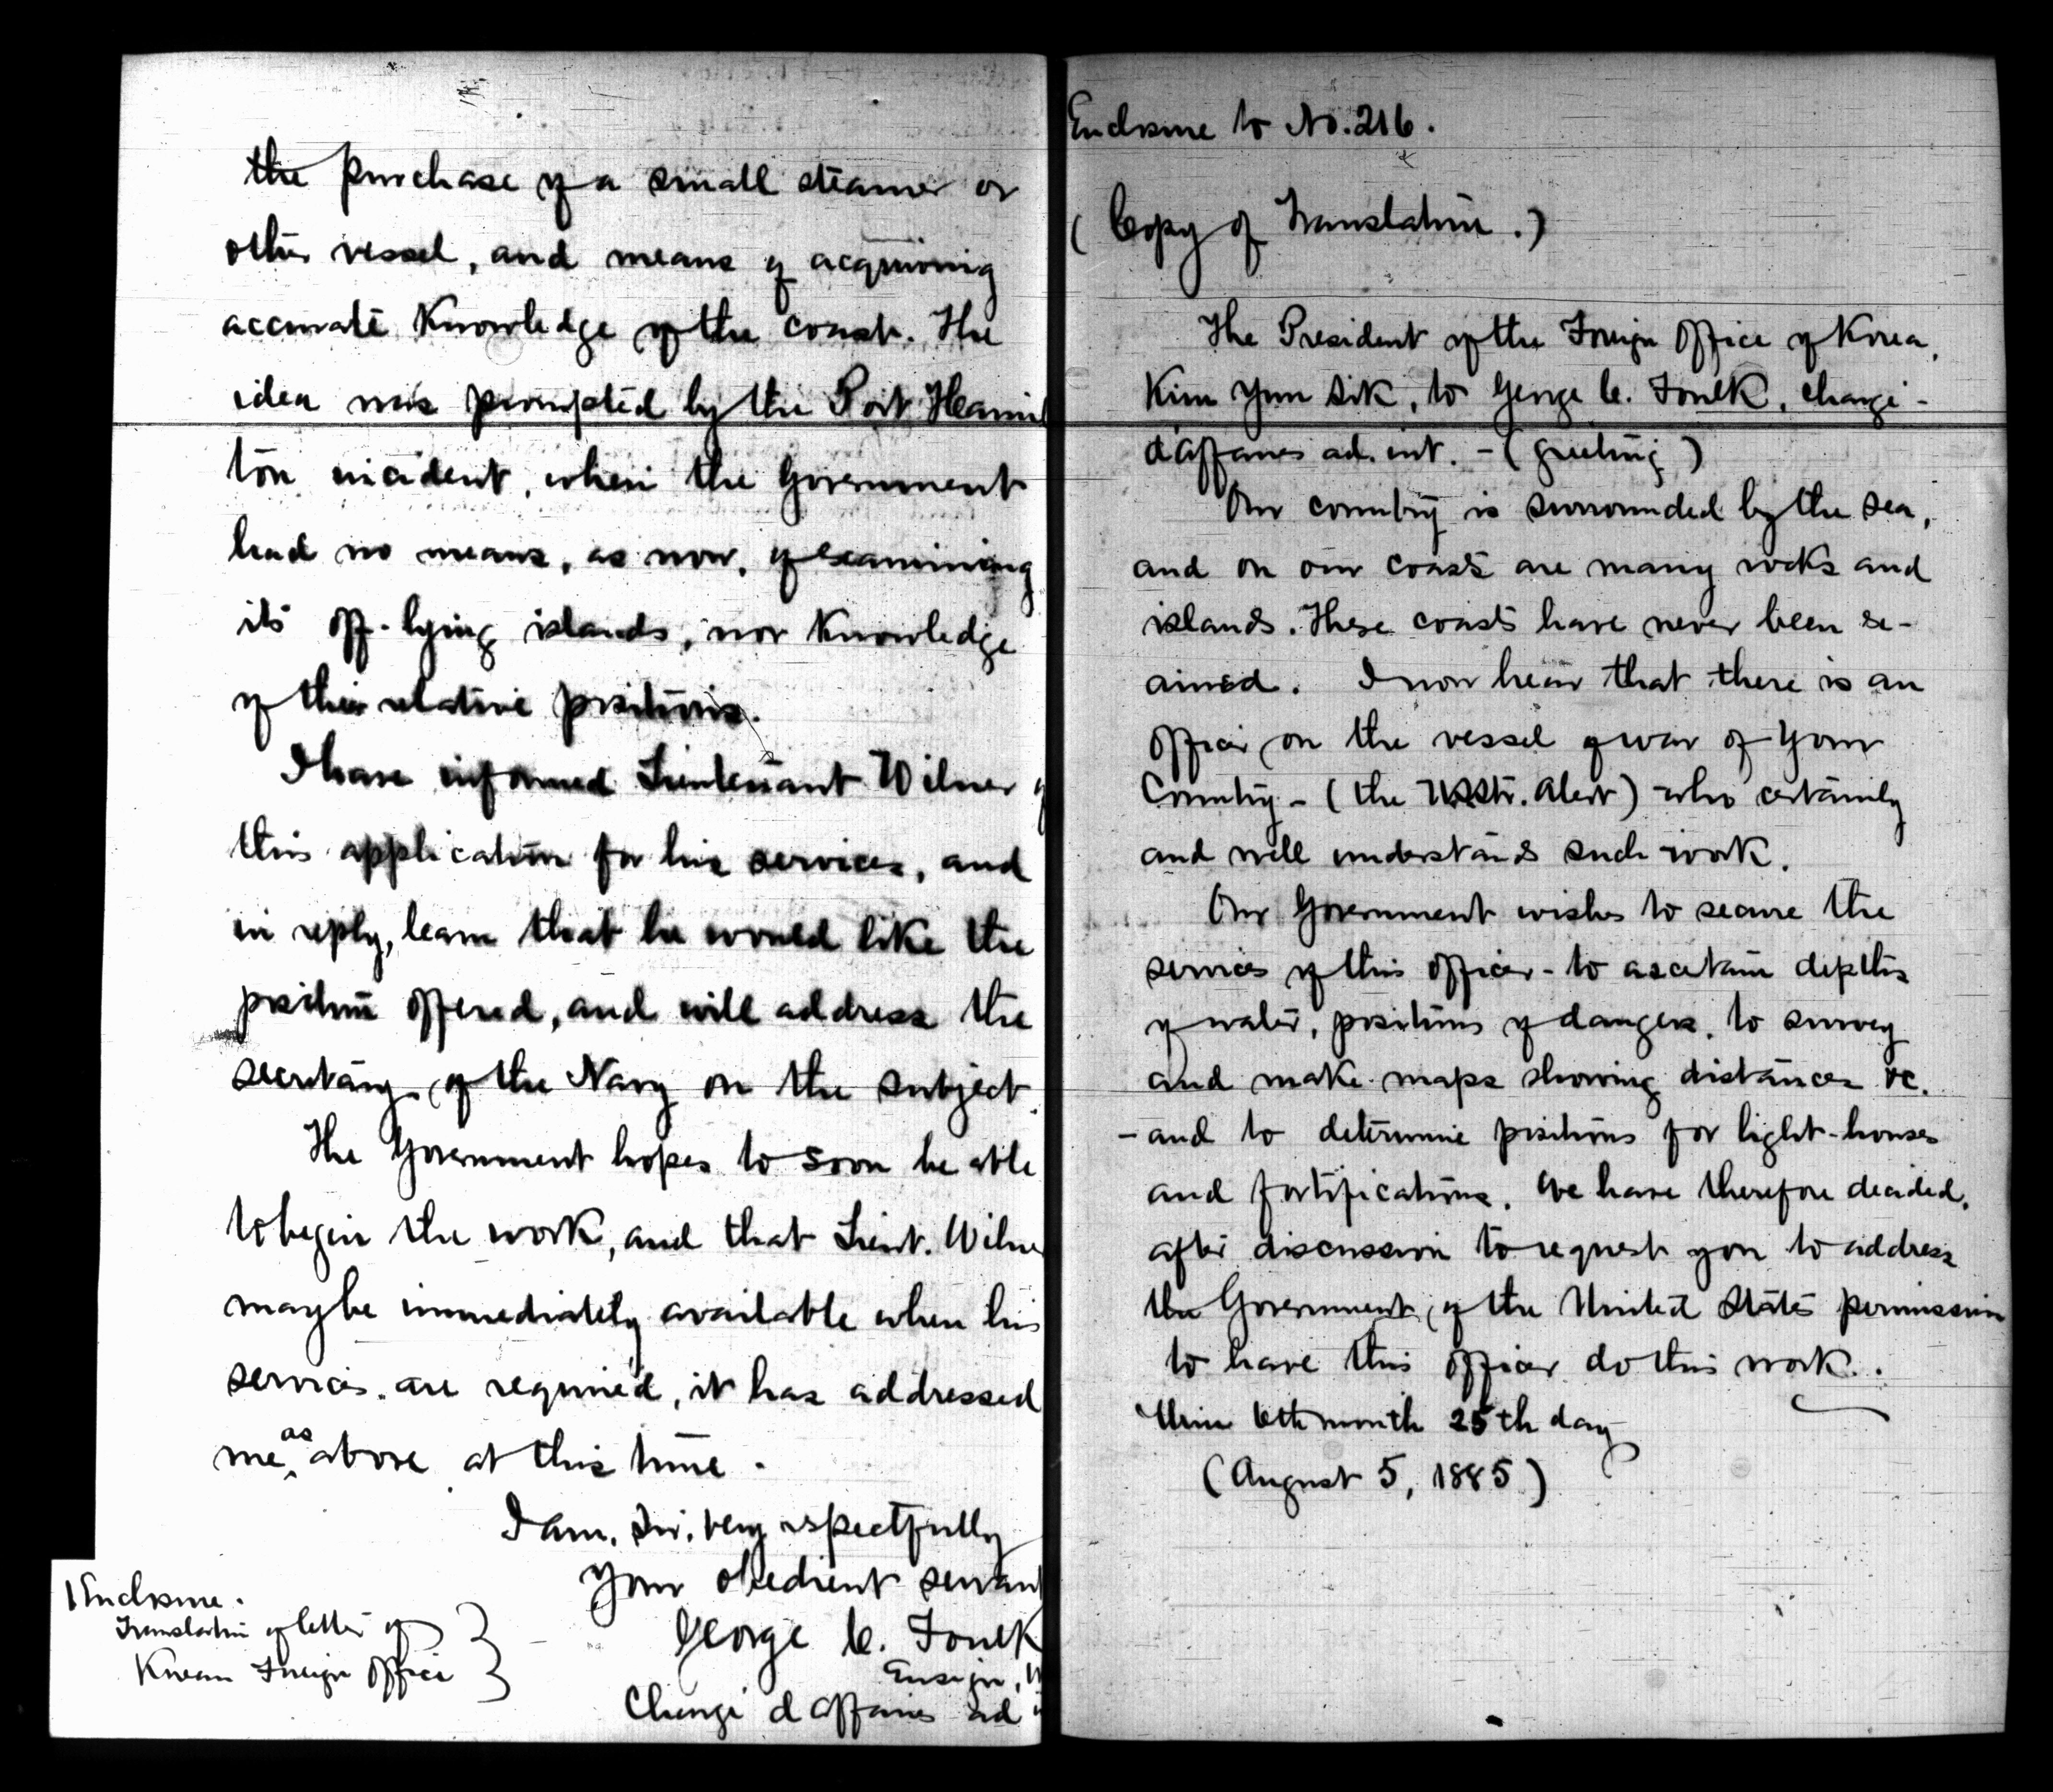 the purchase of a small steamer or
other vessel, and means of acquiring
accurate Knowledge of the coast. The
idea was prompted by the Port Hamil
ton incident, when the Government
had no means, as now, of examining
its off-lying islands, nor Knowledge
of their relative positions.
I have informed Lieutenant Wilner
this application for his services, and
in reply, learn that he would like the
position offered, and will address the
secretary of the Navy on the subject.
The Government hopes to soon be able
to begin the work, and that Lieut. Wilne
may be immediately available when his
services are required, it has addressed
me as above at this time.
I am, Sir, very respectfully
Your obedient servant
George C. Foulk
Ensign, U
Chargé d'affaires ad
1 Enclosure.
Translation of letter of
Korean Foreign Office
Enclosure to No. 216.
(Copy of Translation.)
The President of the Foreign Office of Korea,
Kim Yun Sik, to George C. Foulk, Chargé-
d'affaires ad. int. - (greeting)
Our country is surrounded by the sea,
and on our coasts are many rocks and
islands. These coasts have never been ex-
amined. I now hear that there is an
officer on the vessel of war of Your
Country - (the USStr. Alert) - who certainly
and well understands such work.
Our Government wishes to secure the
services of this officer - to ascertain depths
of water, positions of dangers, to survey
and make maps showing distances &c.
- and to determine positions for light-houses
and fortifications. We have therefore decided,
after discussion to request you to address
the Government of the United States permission
to have this officer do this work.
6th month 25th day
(August 5, 1885)